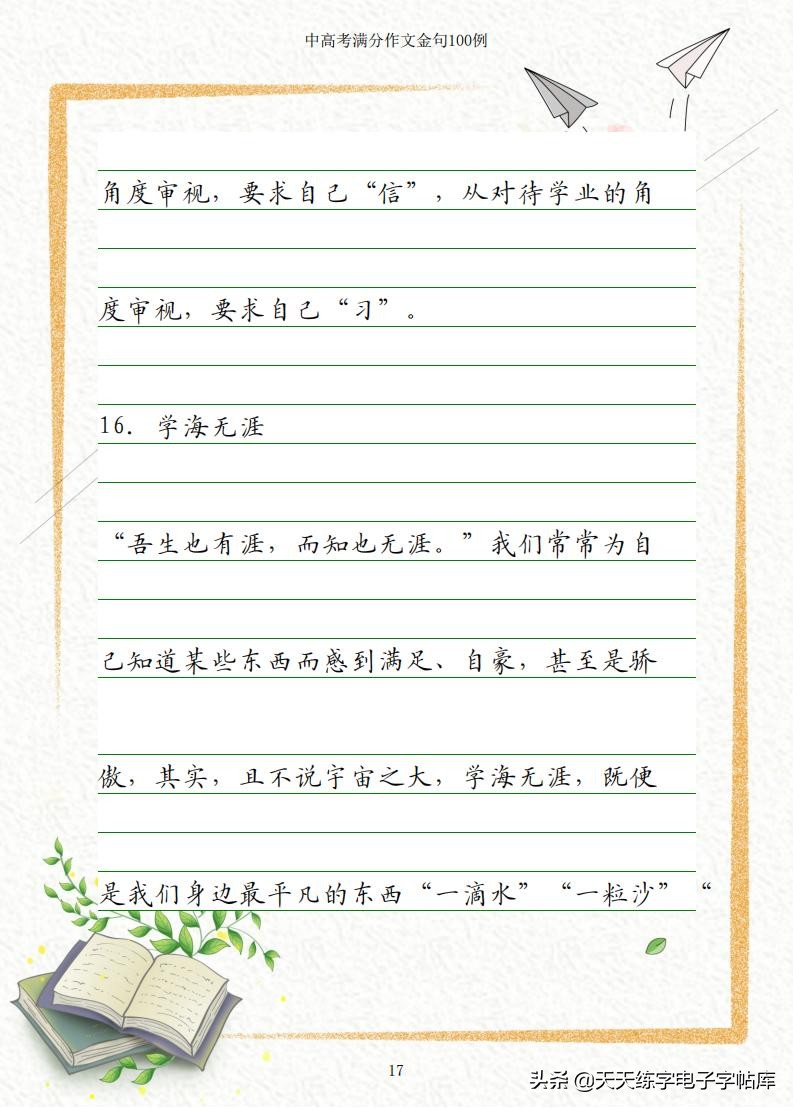 中高考满分作文金句100例
角度审视，要求自己“信”，从对待学业的角
度审视，要求自己“习”。
16. 学海无涯
“吾生也有涯，而知也无涯。”我们常常为自
己知道某些东西而感到满足、自豪，甚至是骄
傲，其实，且不说宇宙之大，学海无涯，既便
是我们身边最平凡的东西“一滴水”“一粒沙”“
17
头条 @天天练字电子字帖库